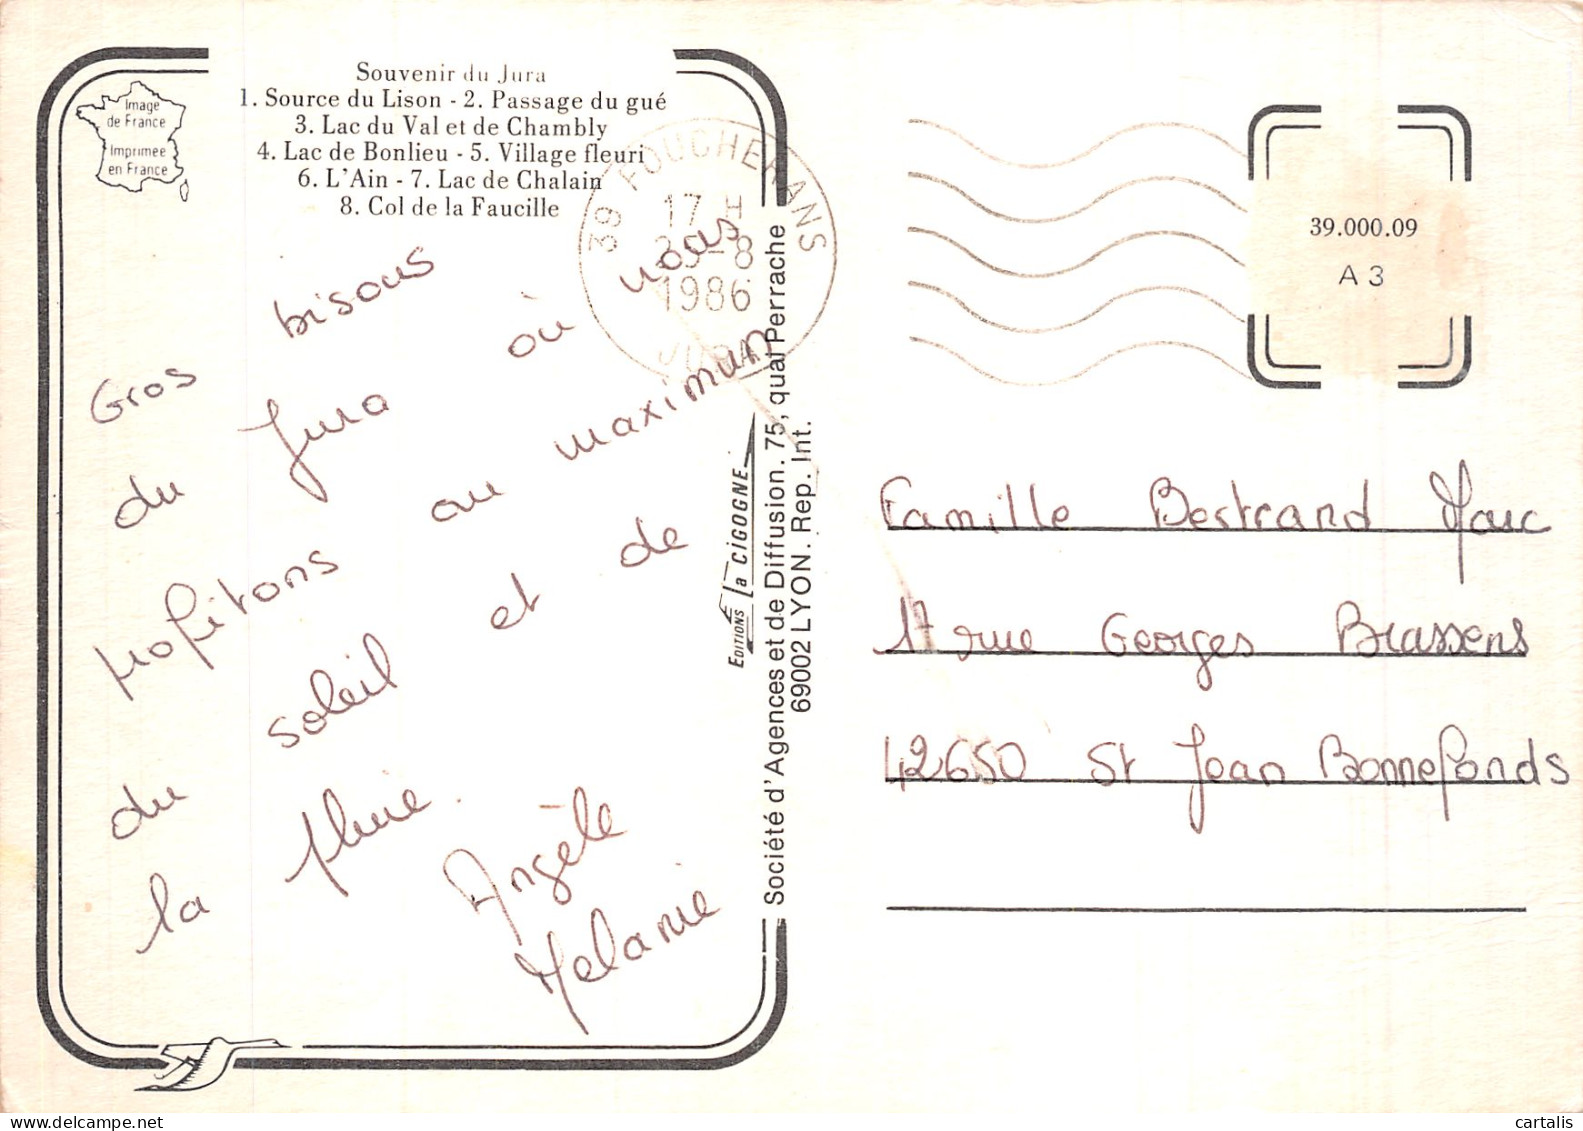 Souvenir du Jura
1. Source du Lison - 2. Passage du gué
3. Lac du Val et de Chambly
4. Lac de Bonlieu - 5. Village fleuri
6. L'Ain - 7. Lac de Chalain
8. Col de la Faucille
Image
de France
Imprimée
en France
Gros bisous
du Jura où nous
profitons au maximun
du soleil et de
la pluie.
Angèle
Mélanie
39 FOUCHERANS
17 H
-8
1986
JURA
EDITIONS La CIGOGNE
Société d'Agences et de Diffusion. 75, quai Perrache
69002 LYON. Rep. Int.
39.000.09
A 3
Famille Bestrand Marc
17 rue Georges Brassens
42650 St Jean Bonnefonds
cartalis